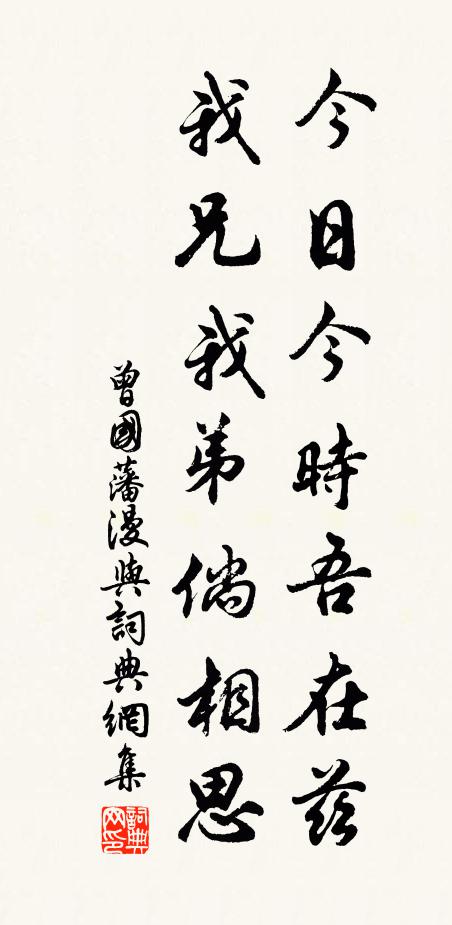 今日今時吾在茲
我兄我弟倘相思
曾國藩漫與詞典網集
詞典网印